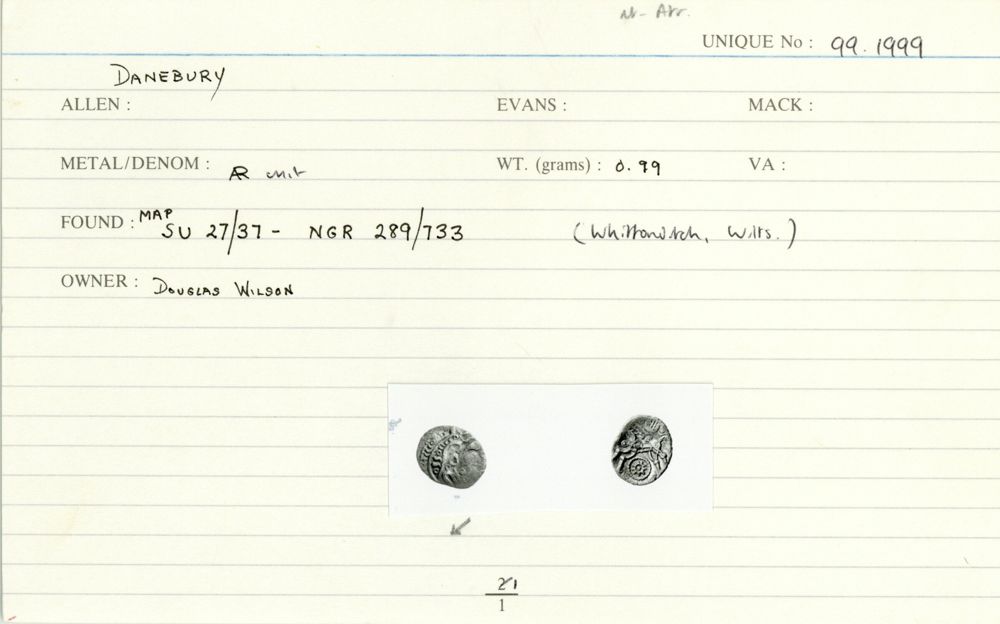 UNIQUE No : 99.1999
DANEBURY
ALLEN : EVANS : MACK :
METAL/DENOM : AR unit WT. (grams) : 0.99 VA :
FOUND : MAP SU 27/37 - NGR 289/733 (Whittonditch, Wilts.)
OWNER : DOUGLAS WILSON
21
1